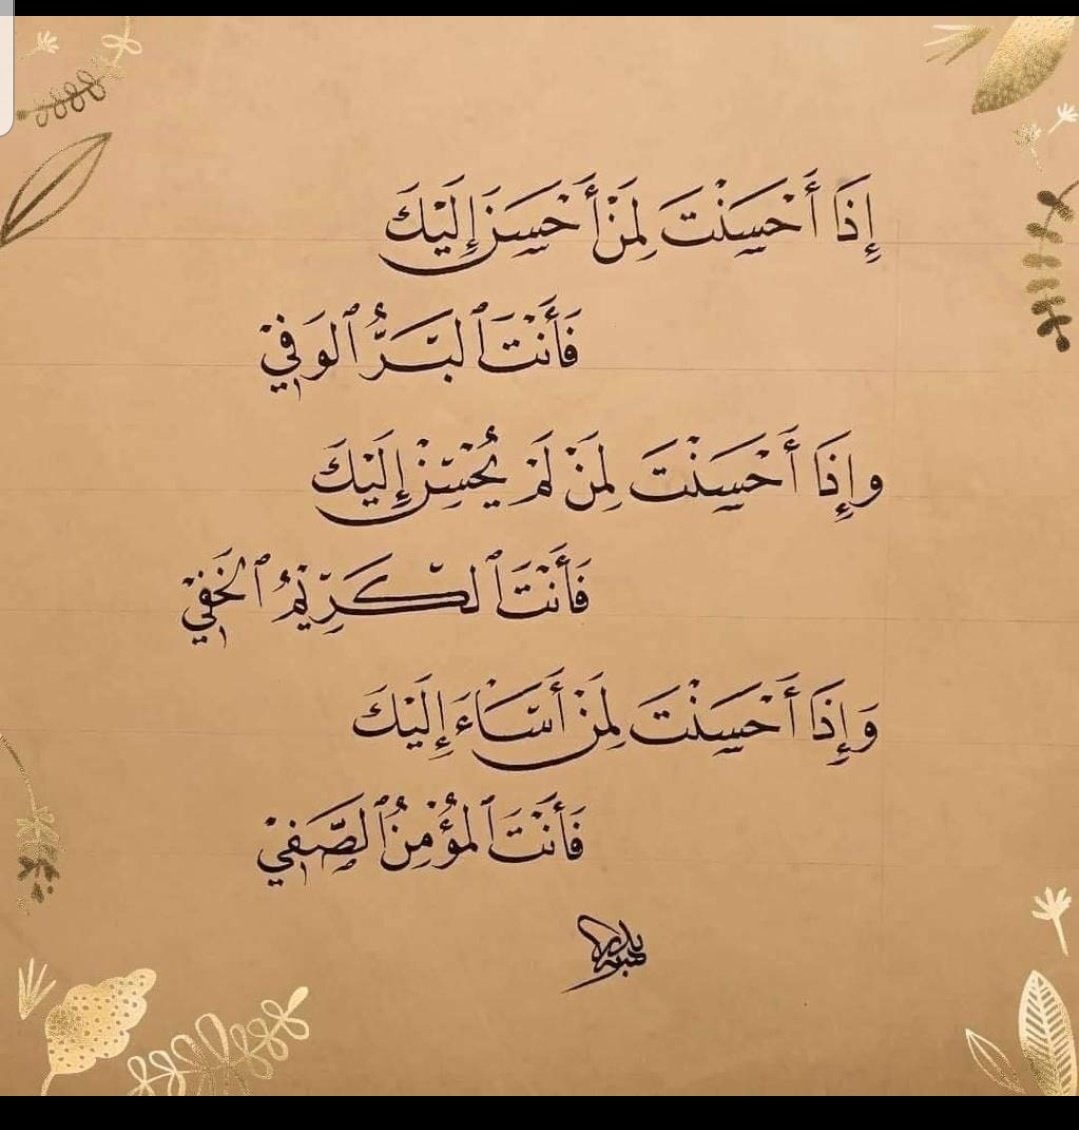 إِذَا أَحْسَنْتَ لِمَنْ أَحْسَنَ إِلَيْكَ
فَأَنْتَ ٱلْبَرُّ ٱلوَفِيْ
وإِذَا أَحْسَنْتَ لِمَنْ لَمْ يُحْسِنْ إِلَيْكَ
فَأَنْتَ ٱلْكَرِيْمُ ٱلخَفِيْ
وَإِذَا أَحْسَنْتَ لِمَنْ أَسَاْءَ إِلَيْكَ
فَأَنْتَ ٱلمُؤْمِنُ ٱلصَّفِيْ